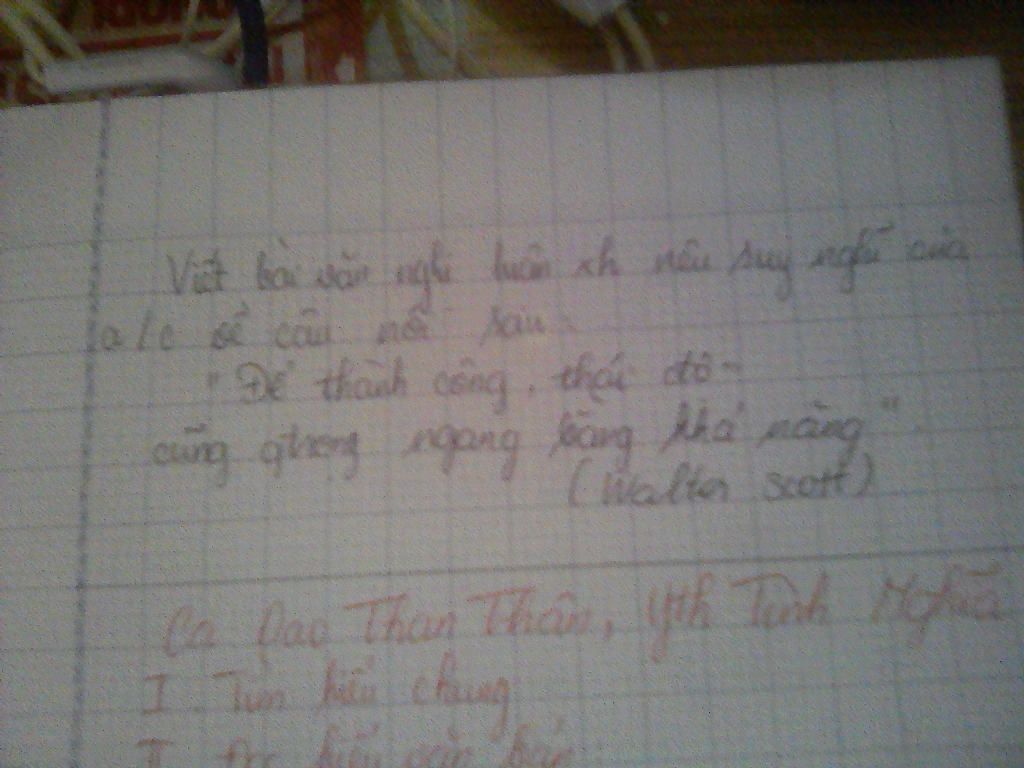 Viết bài văn nghị luận xh nêu suy nghĩ của
a/c về câu nói sau:
"Để thành công, thái độ
cũng qtrọng ngang bằng khả năng"
(Walter Scott)
Ca Dao Than Thân, Yth Tình Nghĩa
I. Tìm hiểu chung
II Đọc hiểu văn bản